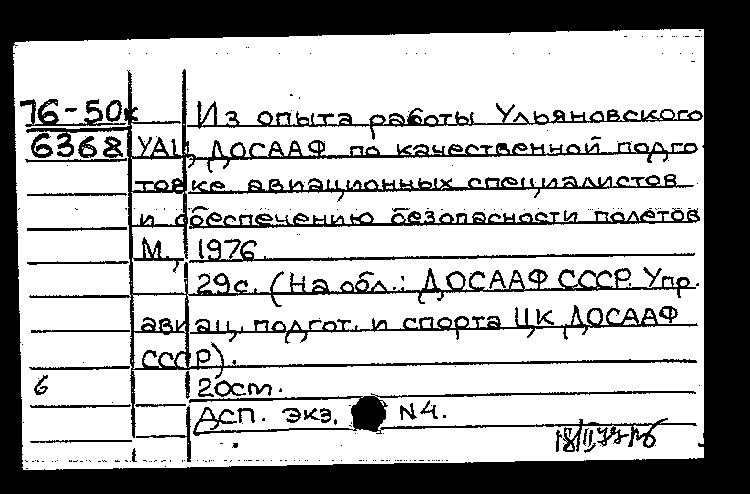 76-50к Из опыта работы Ульяновского
6368 УАЦ ДОСААФ по качественной подго
товке авиационных специалистов
и обеспечению безопасности полетов
М., 1976.
29с. (На обл.: ДОСААФ СССР. Упр.
авиац. подгот. и спорта ЦК ДОСААФ
СССР).
6 20см.
ДСП. экз. N4.